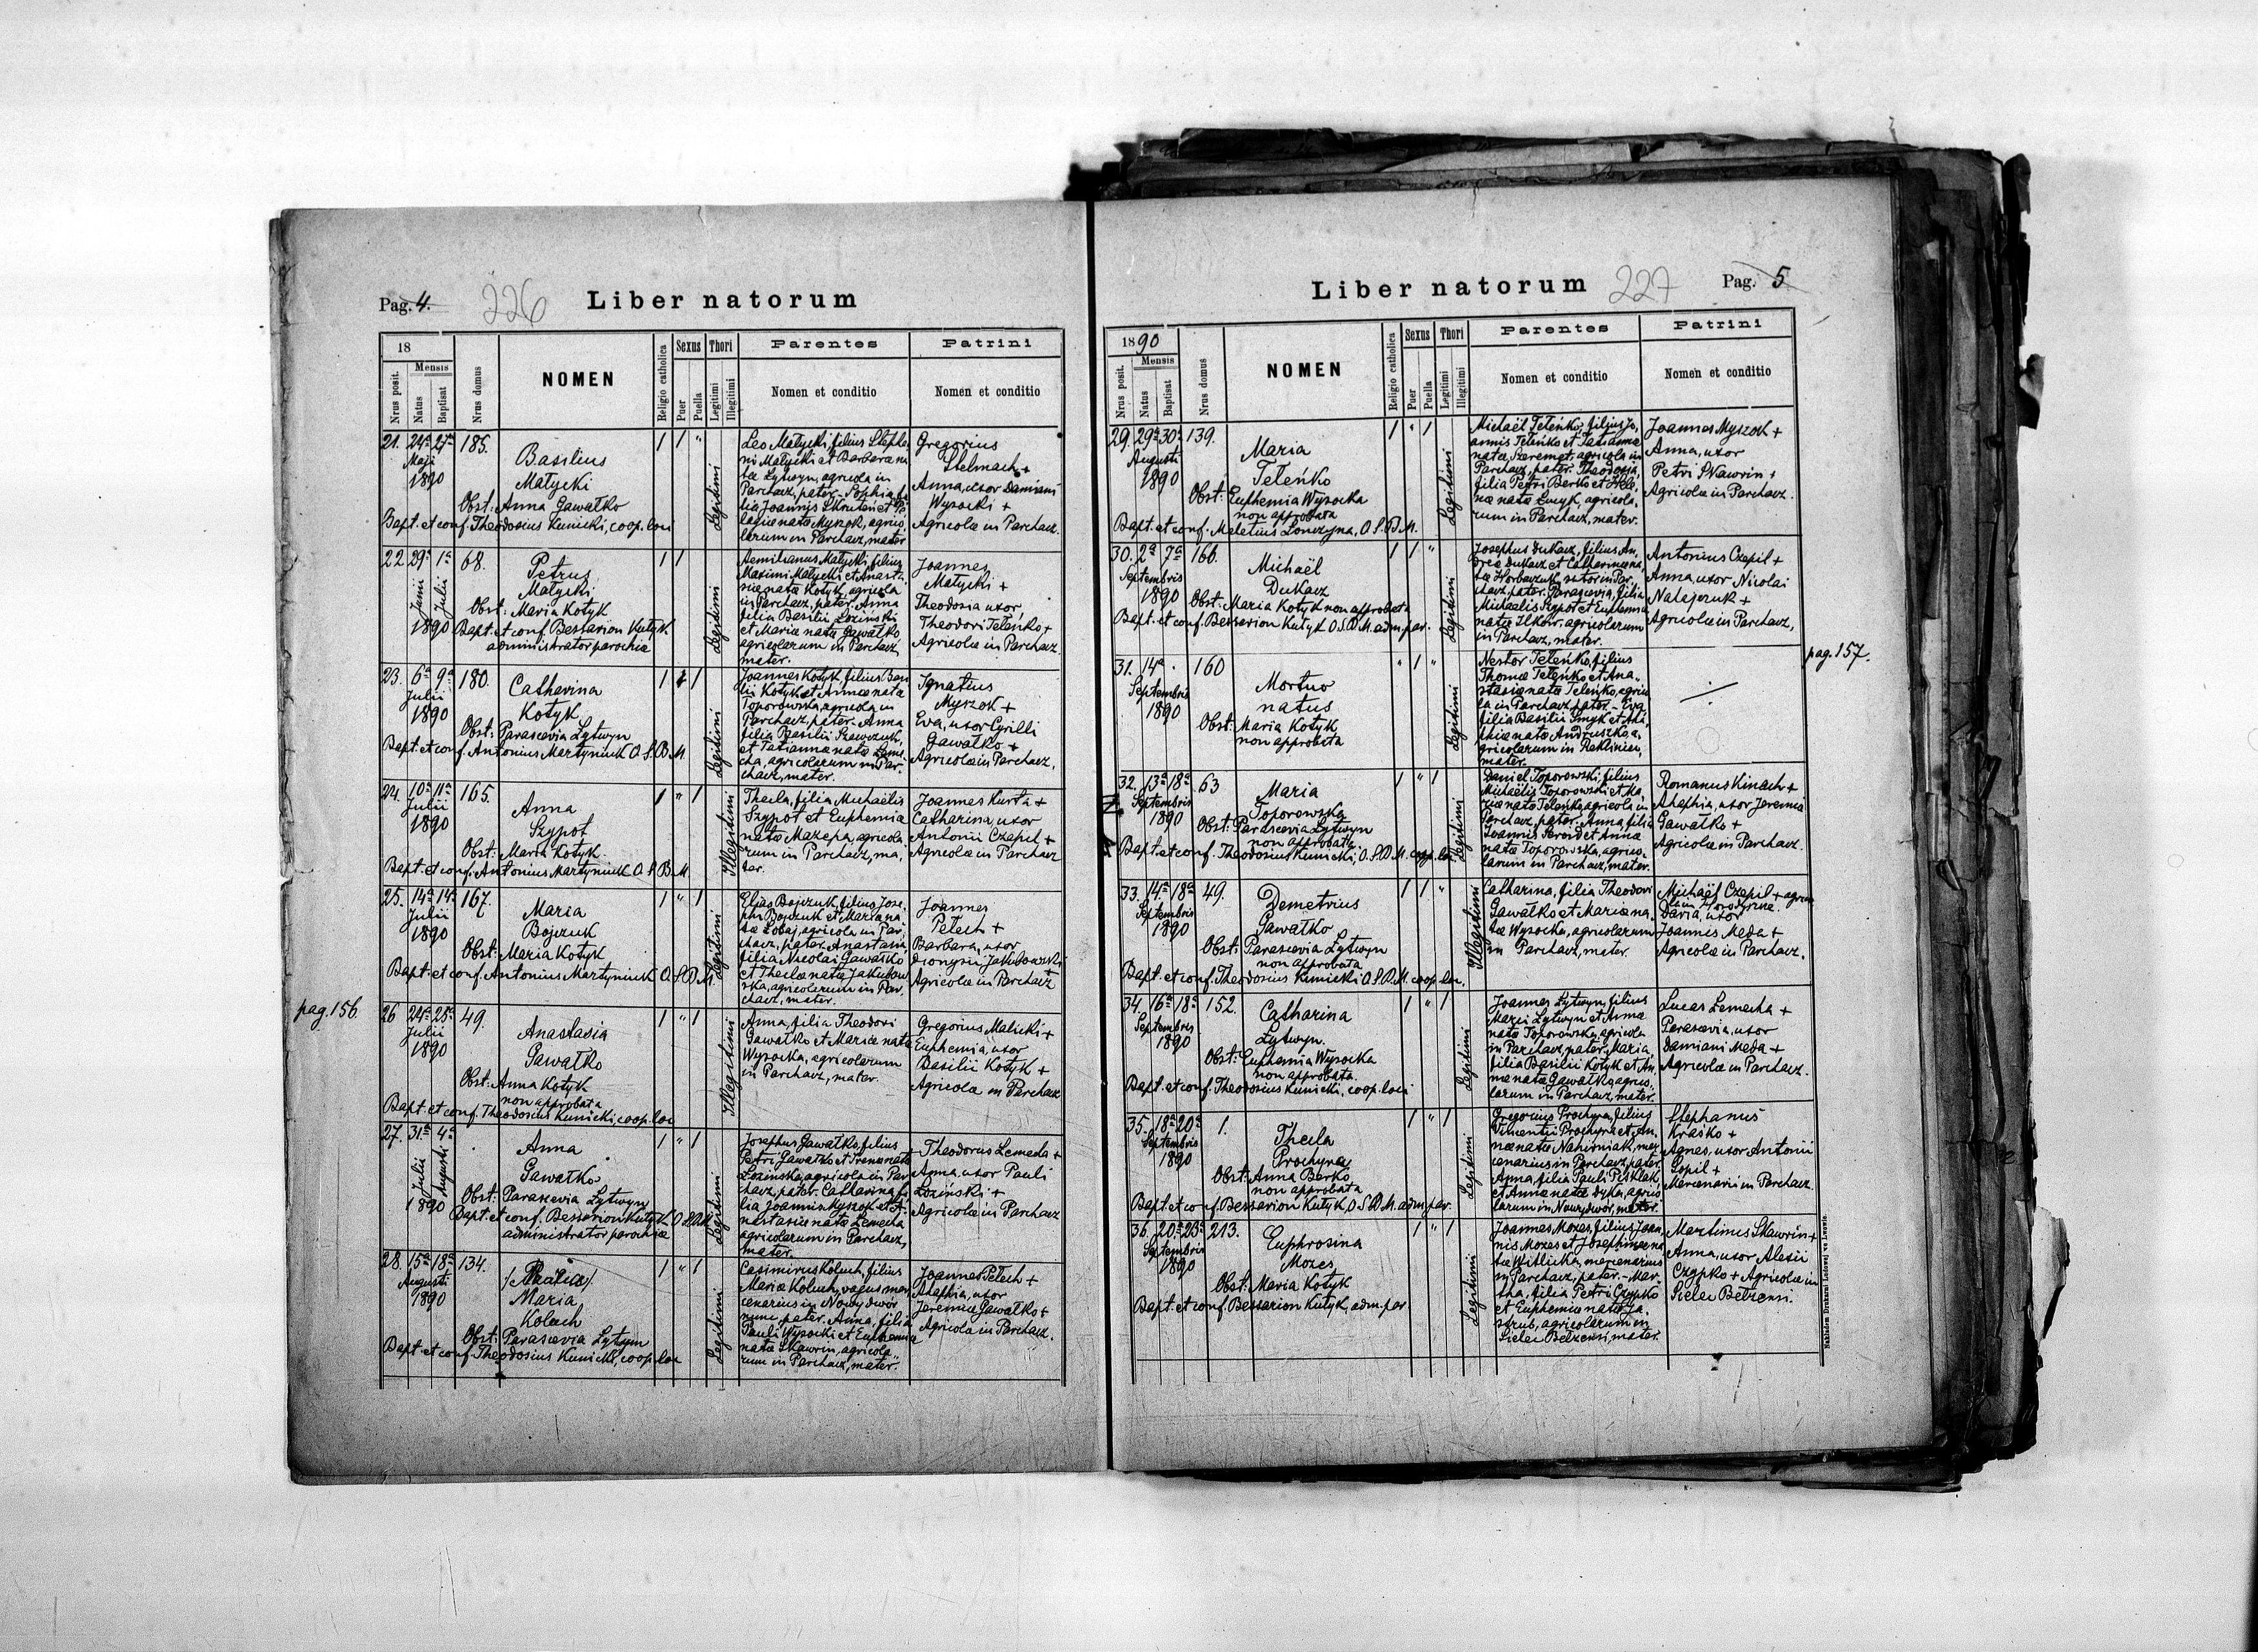 Pag. 4.
226
Liber natorum
18
Nrus posit.
Mensis
Natus
Baptisat
Nrus domus
NOMEN
Religio catholica
Sexus
Puer
Puella
Thori
Legitimi
Illegitimi
Parentes
Nomen et conditio
Patrini
Nomen et conditio
21. 24a
Maji
1890
185.
Basilius
Matycki
Obst: Anna Gawałko
Bapt. et conf. Theodosius Kunicki, coop. loci
Legitimi
Leo Matycki, filius Stepha
ni Matycki et Barbara na
ta Lytwyn, agricola in
Parchacz, pater. Sophia fi
lia Joannis
lagia nata Myszok, agrico
larum in Parchacz, mater
Gregorius
Stelmach +
Anna, uxor Damiani
Wysocki +
Agricolae in Parchacz.
22. 29a 1a
Junii Julii
1890
68.
Petrus
Matycki
Obst: Maria Kotyk
Bapt. et conf. Bessarion Kutyk
administrator parochiae
Legitimi
Aemilianus Matycki, filius
Maximi Matycki et Anasta
siae nata Kotyk, agricola
in Parchacz, pater. Anna
filia Basilii Lozinski
et Mariae nata Gawałko
agricolarum in Parchacz
mater.
Joannes
Matycki +
Theodosia uxor
Theodori Teleńko +
Agricolae in Parchacz
23. 6a 9a
Julii
1890
180.
Catharina
Kotyk
Obst: Parascevia Lytwyn
Bapt. et conf. Antonius Martyniuk O.S.B.M.
Legitimi
Joannes Kotyk, filius Basi
lii Kotyk et Annae nata
Toporowska, agricola in
Parchacz, pater. Anna
filia Basilii Krawczuk,
et Tatianna nata
cha, agricolarum in Par-
chacz, mater.
Ignatius
Myszok +
Eva, uxor Cyrilli
Gawałko +
Agricolae in Parchacz.
24. 10a 11a
Julii
1890
165.
Anna
Szypot
Obst: Maria Kotyk.
Bapt. et conf. Antonius Martyniuk O.S.B.M.
Illegitimi
Thecla, filia Michaëlis
Szypot et Euphemia
nata Mazepa, agricola
rum in Parchacz, ma,
ter.
Joannes Kurta +
Catharina, uxor
Antonii Czepil +
Agricolae in Parchacz
25. 14a 14a
Julii
1890
167.
Maria
Bojczuk
Obst: Maria Kotyk
Bapt. et conf. Antonius Martyniuk O.S.B.M.
Legitimi
Elias Bojczuk, filius Jose,
phi Bojczuk et Maria na
ta Lobaj, agricola in Par
chacz, pater. Anastasia,
filia Nicolai Gawałko
et Theclae nata Jakubow
ska, agricolarum in Par,
chacz, mater.
Joannes
Petech +
Barbara, uxor
Dionysii Jakubowski +
Agricolae in Parchacz
pag. 156
26
Julii
1890
49.
Anastasia
Gawałko
Obst: Anna Kotyk
non approbata
Bapt. et conf. Theodosius Kunicki, coop. loci
Illegitimi
Anna, filia Theodori
Gawałko et Mariae nata
Wysocka, agricolarum
in Parchacz, mater.
Gregorius Malicki +
Euphemia, uxor
Basilii Kotyk +
Agricolae in Parchacz
27. 31a 4a
Julii Augusti
1890
Anna
Gawałko
Obst: Parascevia Lytwyn
Bapt. et conf. Bessarion Kutyk O.S.B.M.
administrator parochiae
Legitimi
Josephus Gawałko, filius
Petri Gawałko et Irenae nata
Lozinska, agricola in Par
chacz, pater. Catharina, fi
lia Joannis Myszok et A-
nastasiae nata Lemecha
agricolarum in Parchacz,
mater.
Theodorus Lemecha +
Anna, uxor Pauli
Loziński +
Agricolae in Parchacz
28. 15a 18a
Augusti
1890
134.
Maria
Koluch
Obst: Parascevia Lytwyn
Bapt. et conf. Theodosius Kunicki, coop. loci
Legitimi
Casimirus Koluch, filius
Mariae Koluch, vagus mer
cenarius in Nowydwor
nunc, pater. Anna, filia
Pauli Wysocki et Euphemia
nata Skawrin, agricola
rum in Parchacz, mater.
Joannes Petech +
Ahaphia, uxor
Jeremiae Gawałko +
Agricola in Parchacz.
Liber natorum
227
Pag. 5
1890
Nrus posit.
Mensis
Natus
Baptisat
Nrus domus
NOMEN
Religio catholica
Sexus
Puer
Puella
Thori
Legitimi
Illegitimi
Parentes
Nomen et conditio
Patrini
Nomen et conditio
29. 29a 30a
Augusti
1890
139.
Maria
Teleńko
Obst: Euphemia Wysocka
non approbata
Bapt. et conf. Meletius Lonczyna, O.S.B.M.
Legitimi
Michaël Teleńko, filius Jo,
annis Teleńko et Tatianna
nata Szeremet, agricola in
Parchacz, pater. Theodosia,
filia Petri Berko et Hele
nae nata Lucyk, agricola,
rum in Parchacz, mater.
Joannes Myszok +
Anna, uxor
Petri Skawrin +
Agricolae in Parchacz.
30. 2a 7a
Septembris
1890
166.
Michaël
Dukacz
Obst: Maria Kotyk non approbata
Bapt. et conf. Bessarion Kutyk O.S.B.M. adm. par.
Legitimi
Josephus Dukacz, filius An,
dreae Dukacz et Catharinae na,
ta Horbaczuk, sutor in Par,
chacz, pater. Parascevia, filia
Michaelis Szypot et Euphemia
nata Ilkow, agricolarum
in Parchacz, mater.
Antonius Czepil +
Anna, uxor Nicolai
Natajczuk +
Agricolae in Parchacz,
pag. 157.
31. 14a
Septembris
1890
160
Mortuo
natus
Obst: Maria Kotyk
non approbata
Legitimi
Nestor Teleńko, filius
Thomae Teleńko et Ana,
stasia nata Teleńko, agrico
la in Parchacz, pater. - Eva
filia Basilii Smyk et Aha,
phia nata Andruszko, a,
gricolarum in Rekliniec,
mater.
32. 13a 18a
Septembris
1890
63
Maria
Toporowska
Obst: Parascevia Lytwyn
non approbata
Bapt. et conf. Theodosius Kunicki, O.S.B.M. coop. loci
Legitimi
Daniel Toporowski, filius
Michaëlis Toporowski et Ma,
riae nata Teleńko, agricola in
Parchacz, pater. Anna, filia
Joannis et Anna
nata Toporowska, agrico,
larum in Parchacz, mater.
Romanus Kinach +
Ahaphia, uxor Jeremiae
Gawałko +
Agricolae in Parchacz.
33. 14a 18a
Septembris
1890
49.
Demetrius
Gawałko
Obst: Parascevia Lytwyn
non approbata
Bapt. et conf. Theodosius Kunicki O.S.B.M. coop. loc.
Illegitimi
Catharina, filia Theodori
Gawałko et Mariae na,
ta Wysocka, agricolarum
in Parchacz, mater.
Michaël Czepil + agrico
la in Horodyszcze
Daria, uxor
Joannis Meda +
Agricolae in Parchacz.
34 16a 18a
Septembris
1890
152.
Catharina
Lytwyn.
Obst: Euphemia Wysocka
non approbata.
Bapt. et conf. Theodosius Kunicki, coop. loci
Legitimi
Joannes Lytwyn, filius
Marci Lytwyn et Anna
nata Toporowska, agricola
in Parchacz, pater. Maria
filia Basilii Kotyk et An,
nae nata Gawałko, agrico,
larum in Parchacz, mater.
Lucas Lemecha +
Parascevia, uxor
Damiani Meda +
Agricolae in Parchacz.
35. 18a 20a
Septembris
1890
1.
Thecla
Prochyra
Obst: Anna Berko
non approbata
Bapt. et conf. Bessarion Kutyk, O.S.B.M. adm. par.
Legitimi
Gregorius Prochyra, filius
Vincentii Prochyra et An,
nae nata Nahirniak, mer,
cenarius in Parchacz, pater.
Anna, filia Pauli
et Annae nata Dyka, agrico
larum in Nowydwór, mater.
Stephanus
Kraśko +
Agnes, uxor Antonii
Sopil +
Mercenarii in Parchacz.
36. 20a 23a
Septembris
1890
213.
Euphrosina
Mozes
Obst: Maria Kotyk
Bapt. et conf. Bessarion Kutyk, adm. par
Legitimi
Joannes Mozes, filius Joan,
nis Mozes et Josephinae na
ta Witlicka, mercenarius
in Parchacz, pater. - Mar,
tha, filia Petri Czypko
et Euphemiae nata Ja,
strub, agricolarum in
Sielec Belzensi, mater.
Martinus Skawrin +
Anna, uxor Alexii
Czypko + Agricolae in
Sielec Belzensi.
Nakładem Drukarni Ludowej we Lwowie.